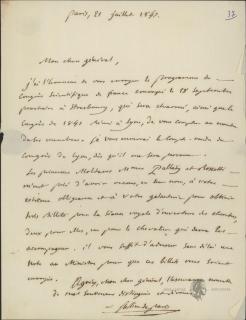 Paris, 21 juillet 1842.
37
Mon cher général,
j'ai l'honneur de vous envoyer le programme du
Congrès scientifique de france convoqué le 18 Septembre
prochain à Strasbourg, qui sera charmé, ainsi que le
Congrès de 1841 réuni à Lyon, de vous compter au nombre
de ses membres. je vous enverrai le compte-rendu du
congrès de Lyon, dès qu'il me sera parvenu.
Les princesses
m'ont prié d'avoir recours, en leur nom, à votre
extrême obligeance et à votre galanterie pour obtenir
billets pour la séance royale d'ouverture des chambres,
deux pour elles, un pour le chevalier qui devra les
accompagner. il vous suffit d'adresser sans délai une
note au Ministre pour que ces billets vous soient
envoyés. Agréez, Mon cher général, l'assurance nouvelle
de mes sentiments distingués et dévoués